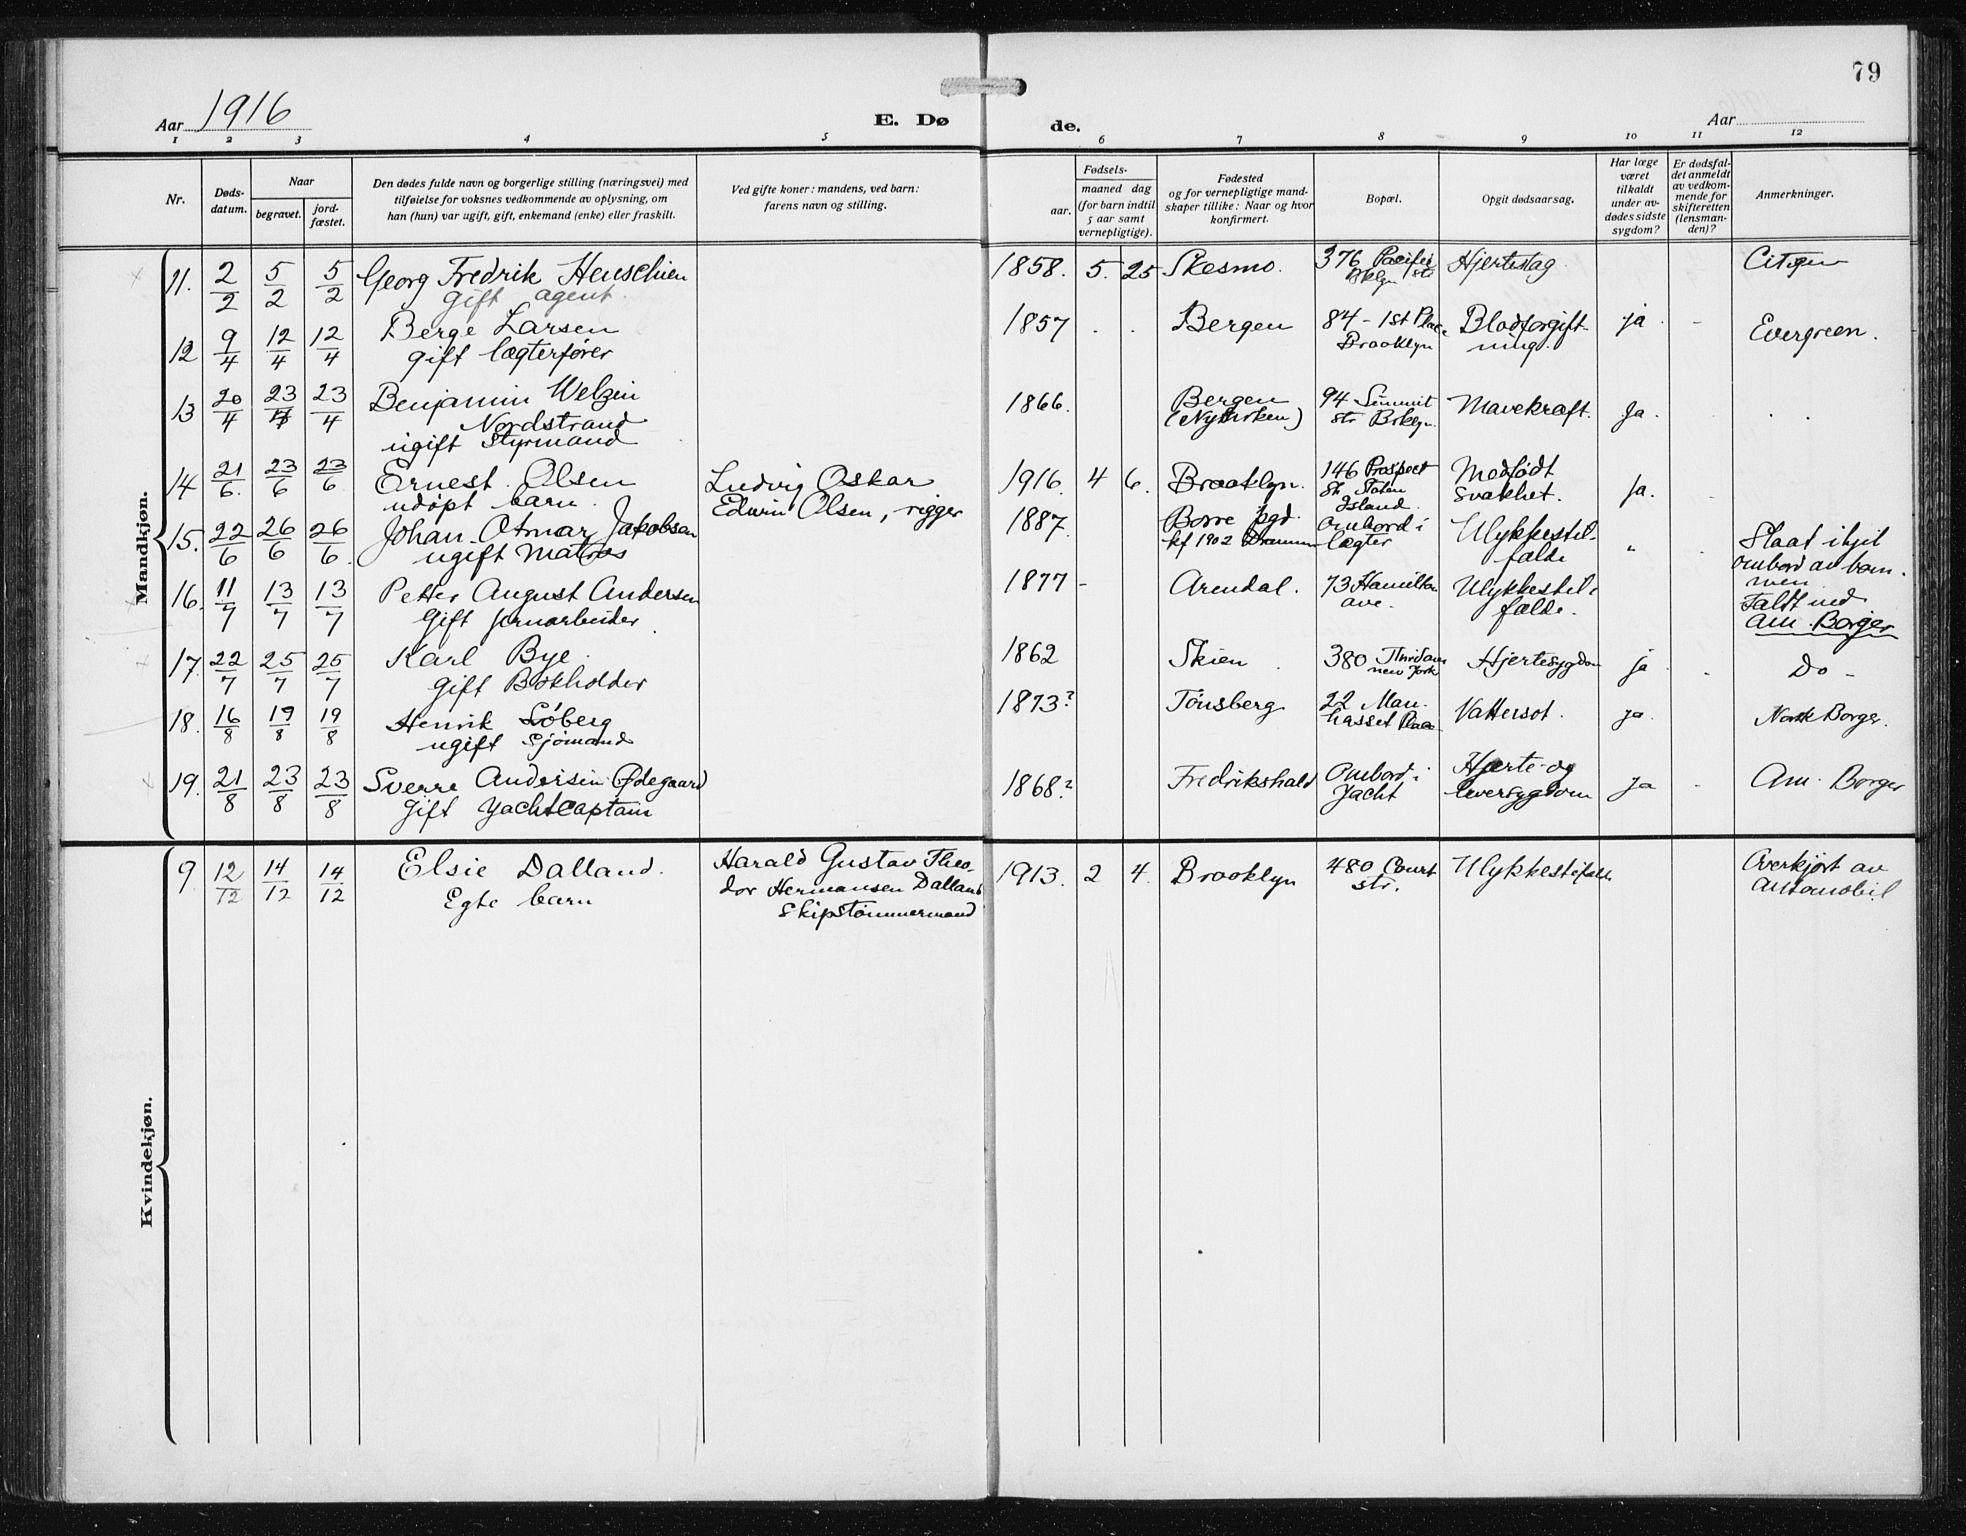 79
Aar 1916
E. Dø
de.
Aar
1 2 3 4 5 6 7 8 9 10 11 12
Nr.
Døds-
datum.
Naar
begravet.
jord-
fæstet.
Den dødes fulde navn og borgerlige stilling (næringsvei) med
tilføielse for voksnes vedkommende av oplysning, om
han (hun) var ugift, gift, enkemand (enke) eller fraskilt.
Ved gifte koner: mandens, ved barn:
farens navn og stilling.
Fødsels-
aar.
maaned dag
(for barn indtil
5 aar samt
vernepligtige).
Fødested
og for vernepligtige mand-
skaper tillike: Naar og hvor
konfirmert.
Bopæl.
Opgit dødsaarsag.
Har læge
været
tilkaldt
under av-
dødes sidste
sygdom?
Er dødsfal-
det anmeldt
av vedkom-
mende for
skifteretten
(lensman-
den)?
Anmerkninger.
Mandkjøn.
11. 2/2 5/2 5/2 Georg Fredrik Henschien
gift agent.
1858. 5. 25 Skesmo.
376 Pacific
Bklyn str
Hjerteslag
Citizen
12 9/4 12/4 12/4 Berge Larsen
gift lægterfører
1857 . . Bergen
84 - 1st Place
Brooklyn
Blodforgift-
ning.
ja - Evergreen.
13 20/4 23/4 23/4 Benjamin Welzin
Nordstrand
ugift Styrmand
1866.
Bergen
(Nykirken)
94 Summit
str Bklyn.
Mavekræft. Ja. . .
14 21/6. 23/6 23/6 Ernest Olsen
udøpt barn.
Ludvig Oskar
Edwin Olsen, rigger
1916. 4 6. Brooklyn.
146 Prospect
Str. Staten
Island.
Medfødt
svakhet.
Ja.
15. 22/6 26/6 26/6. Johan Otmar Jakobsen
ugift Matros
1887.
Borre pgd.
kf 1902 Drammen
ombord i
lægter
Ulykkestil-
fælde
"
Slaat ihjel
ombord av bom-
men
16. 11/7 13/7 13/7 Petter August Andersen
Gift jernarbeider
1877 - Arendal.
73 Hamilton
ave.
Ulykkestil-
fælde.
Faldt ned
Am. Borger
17. 22/7 25/7 25/7 Karl Bye.
Gift Bokholder
1862 Skien.
380 Third ave
new York
Hjertesygdom ja - Do -
18. 16/8 19/8 19/8 Henrik Søberg
ugift Sjømand
1873? Tønsberg
22 Man-
hasset Place
Vattersot. ja. Norsk Borger.
19. 21/8 23/8 23/8 Sverre Andersen Ødegaard
Gift Yachtcaptain
1868? Fredrikshald
Ombord i
Yacht
Hjerte- og
leversygdom
ja - Am. Borger
Kvindekjøn.
9. 12/12 14/12 14/12 Elsie Dalland.
Egte barn
Harald Gustav Theo-
dor Hermansen Dalland
Skipstømmermand
1913. 2 4. Brooklyn
480 Court
str.
Ulykkestilfælde
Overkjørt av
automobil